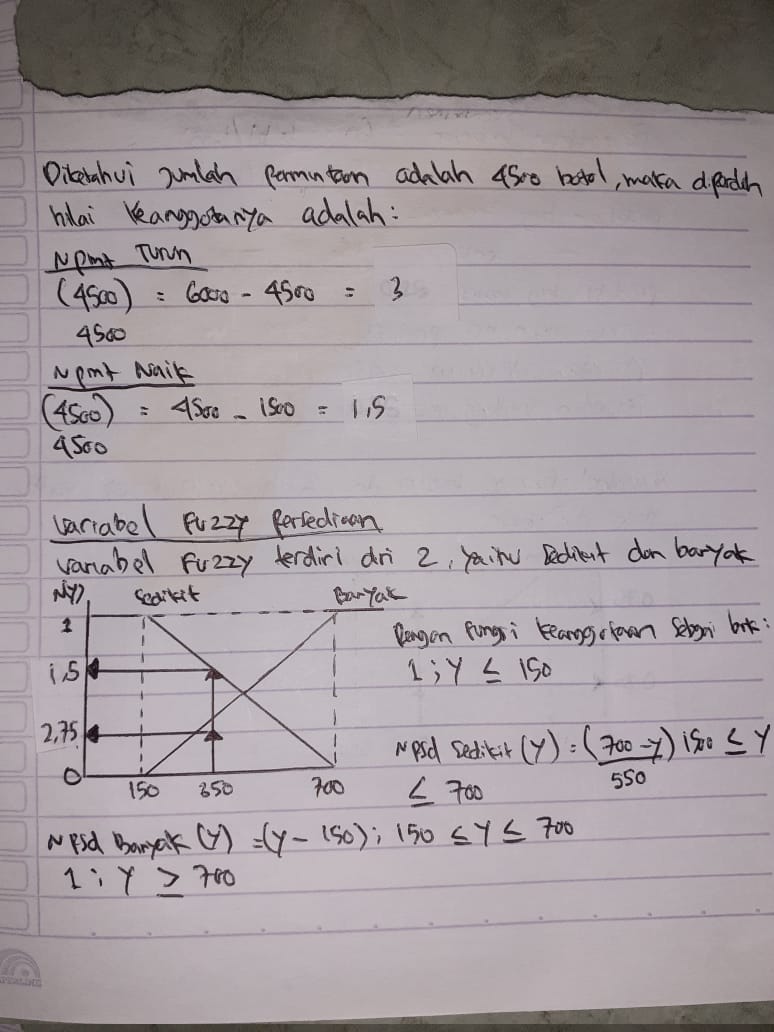 Diketahui Jumlah Permintaan adalah 4500 botol, maka diperoleh
nilai keanggotanya adalah:
N Pmt Turun
(4500) = 6000 - 4500 = 3
4500
N pmt Naik
(4500) = 4500 - 1500 = 1,5
4500
Variabel Fuzzy Persediaan
Variabel Fuzzy terdiri dri 2, yaitu Sedikit dan banyak
N(Y) Sedikit Banyak
1
1,5
2,75
0
150 350 700
Dengan Fungsi keanggotaan Sebgai brkt:
1 ; Y ≤ 150
N Psd Sedikit (Y) = (700 - Y) 1500 ≤ Y
550
≤ 700
N Psd Banyak (Y) = (Y - 150); 150 ≤ Y ≤ 700
1 ; Y ≥ 700